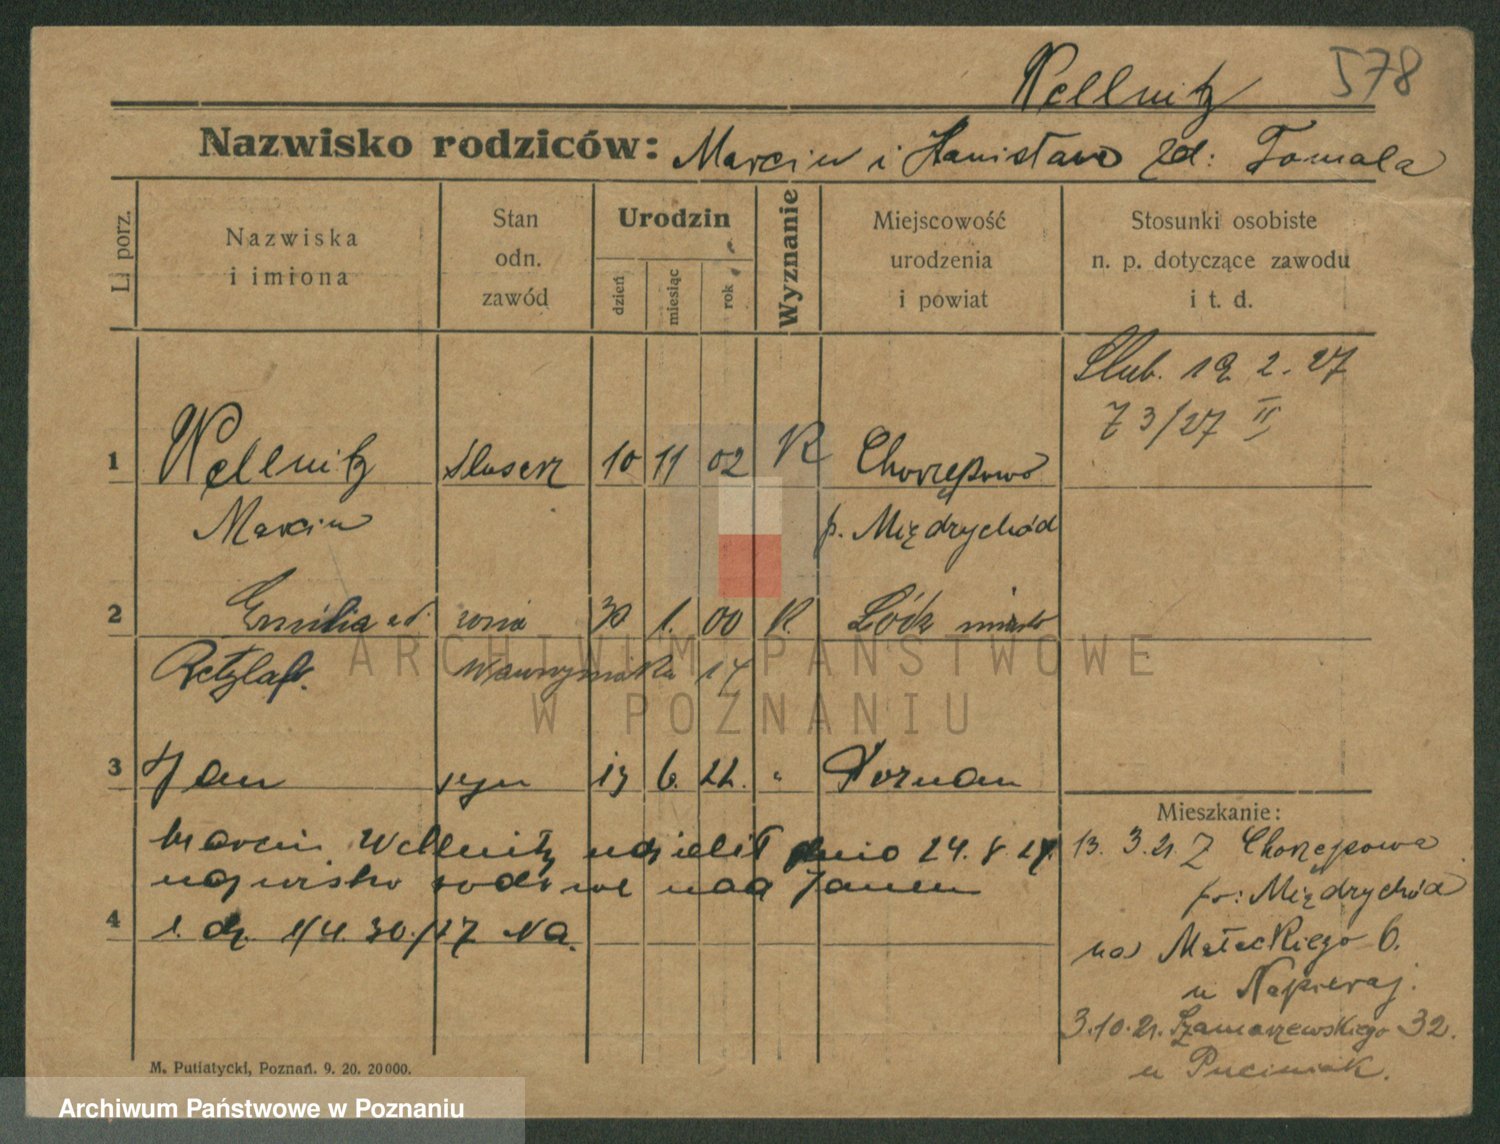 Wellnitz 578
Nazwisko rodziców: Marcin i Stanisława zd: Tomala
L. porz.
Nazwiska
i imiona
Stan
odn.
zawód
Urodzin
dzień
miesiąc
rok
Wyznanie
Miejscowość
urodzenia
i powiat
Stosunki osobiste
n. p. dotyczące zawodu
i t. d.
Slub. 19 2. 27
73/27 II
1 Wellnitz slusarz 10 11 02 K Chorzępowo
Marcin p. Międzychód
2 Emilia zd. żona 30 1. 00 K. Łódz miasto
Retzlaf. Wawrzyniaka 14
3 Jan syn 13 6. 22. " Poznan
Marcin Wellnitz udzielił dnia 24. 8. 27.
nazwisko rodowe nad Janem
4 l. dz. 1/4. 30./27 Na.
Mieszkanie:
13. 3. 21. Z Chorzępowa
po: Międzychód
na Małeckiego 6.
u Napieraj.
3. 10. 21. Szamarzewskiego 32.
u Puciniak.
M. Putiatycki, Poznań. 9. 20. 20000.
ARCHIWUM PAŃSTWOWE
W POZNANIU
Archiwum Państwowe w Poznaniu